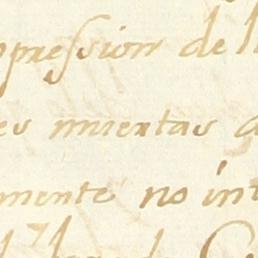 pression de l
es muertas d
mente no int